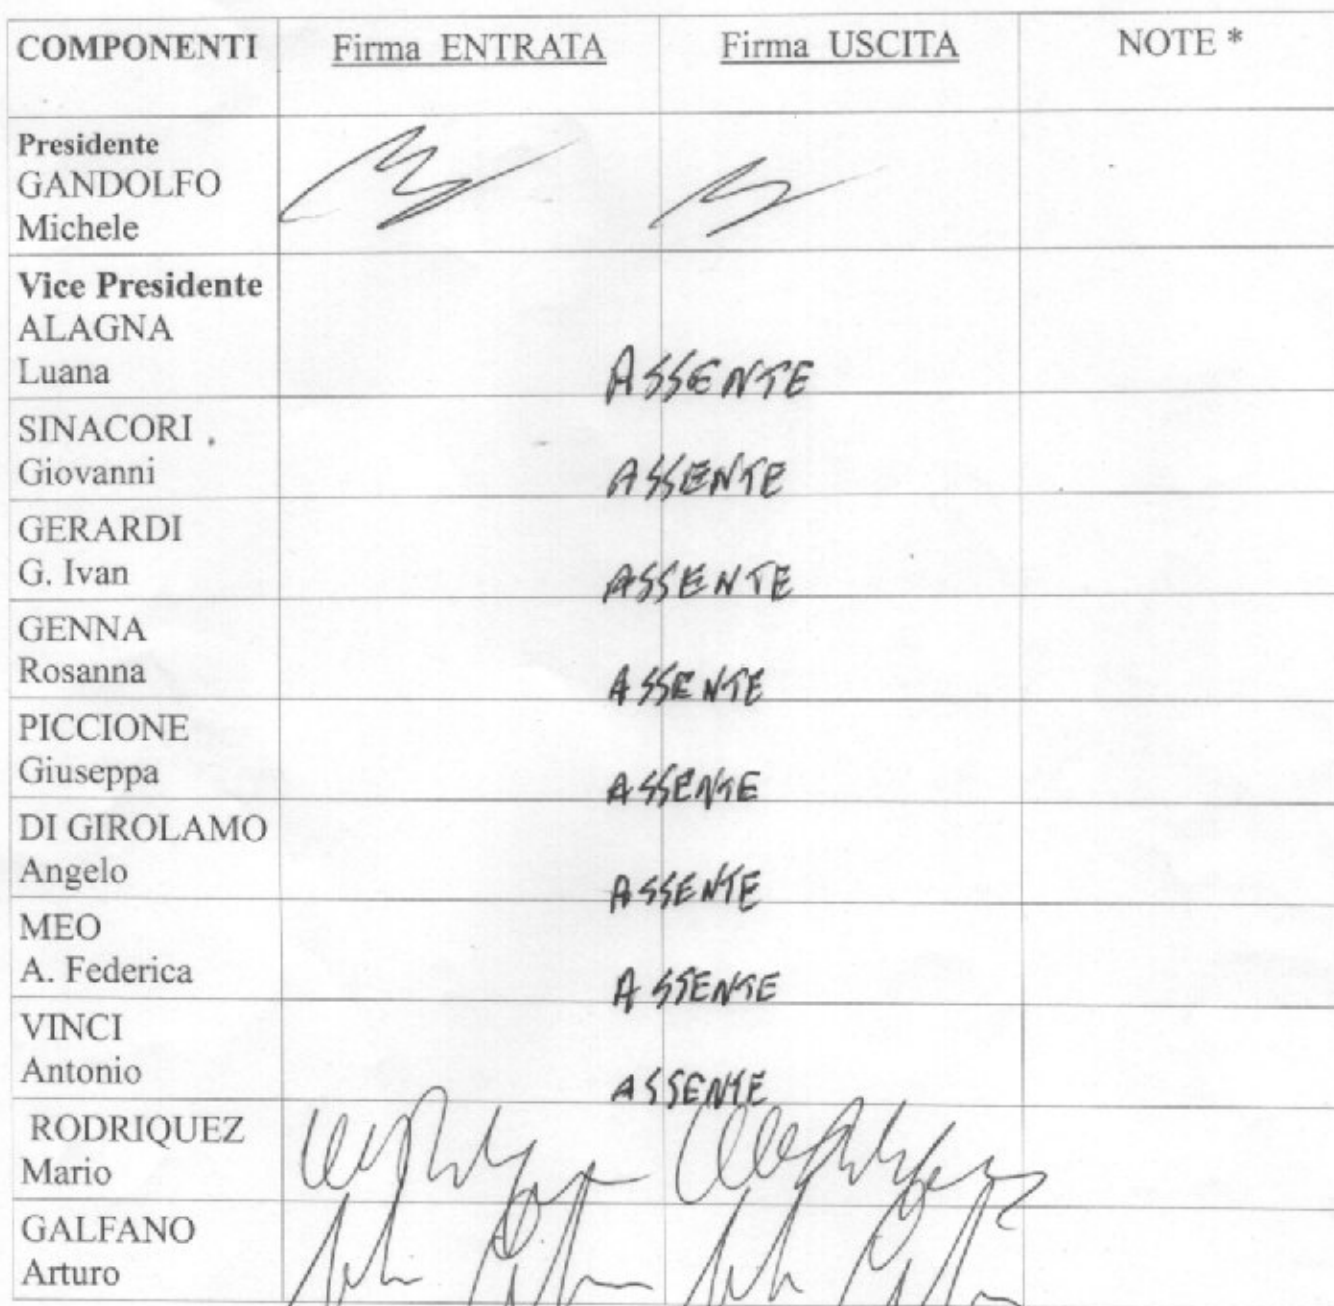 COMPONENTI Firma ENTRATA Firma USCITA NOTE *
Presidente
GANDOLFO
Michele
Vice Presidente
ALAGNA
Luana ASSENTE
SINACORI
Giovanni ASSENTE
GERARDI
G. Ivan ASSENTE
GENNA
Rosanna ASSENTE
PICCIONE
Giuseppa ASSENTE
DI GIROLAMO
Angelo ASSENTE
MEO
A. Federica ASSENTE
VINCI
Antonio ASSENTE
RODRIQUEZ
Mario
GALFANO
Arturo